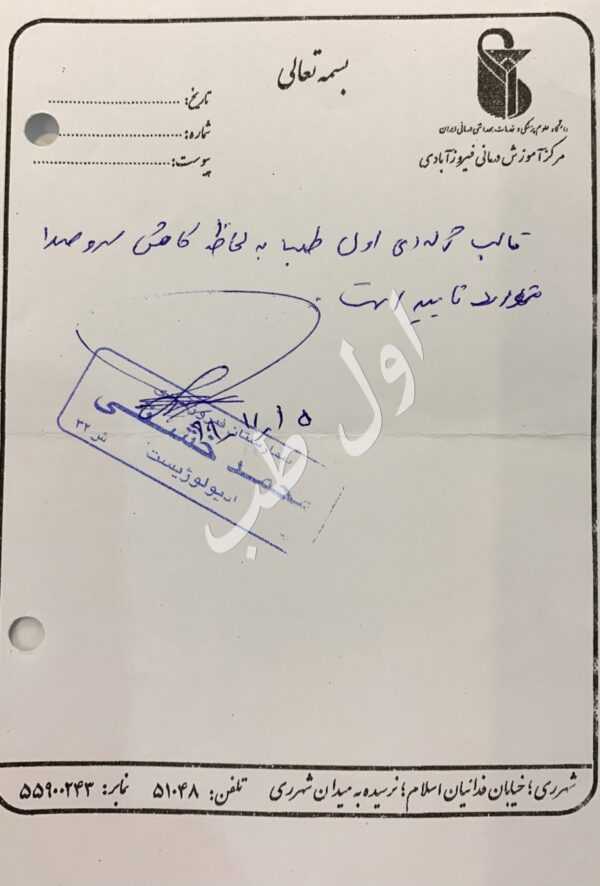 بسمه تعالی
دانشگاه علوم پزشکی و خدمات بهداشتی درمانی ایران
مرکز آموزش درمانی فیروزآبادی
تاریخ: ........................
شماره: ........................
پیوست: ........................
قالب اول طب به لحاظ کاهش سر و صدا
مورد تایید است.
بیمارستان فیروزآبادی
محمد
ادیولوژیست
اول طب
شهرری؛ خیابان فدائیان اسلام؛ نرسیده به میدان شهرری تلفن: ۵۱۰۴۸ نمابر: ۵۵۹۰۰۲۴۳